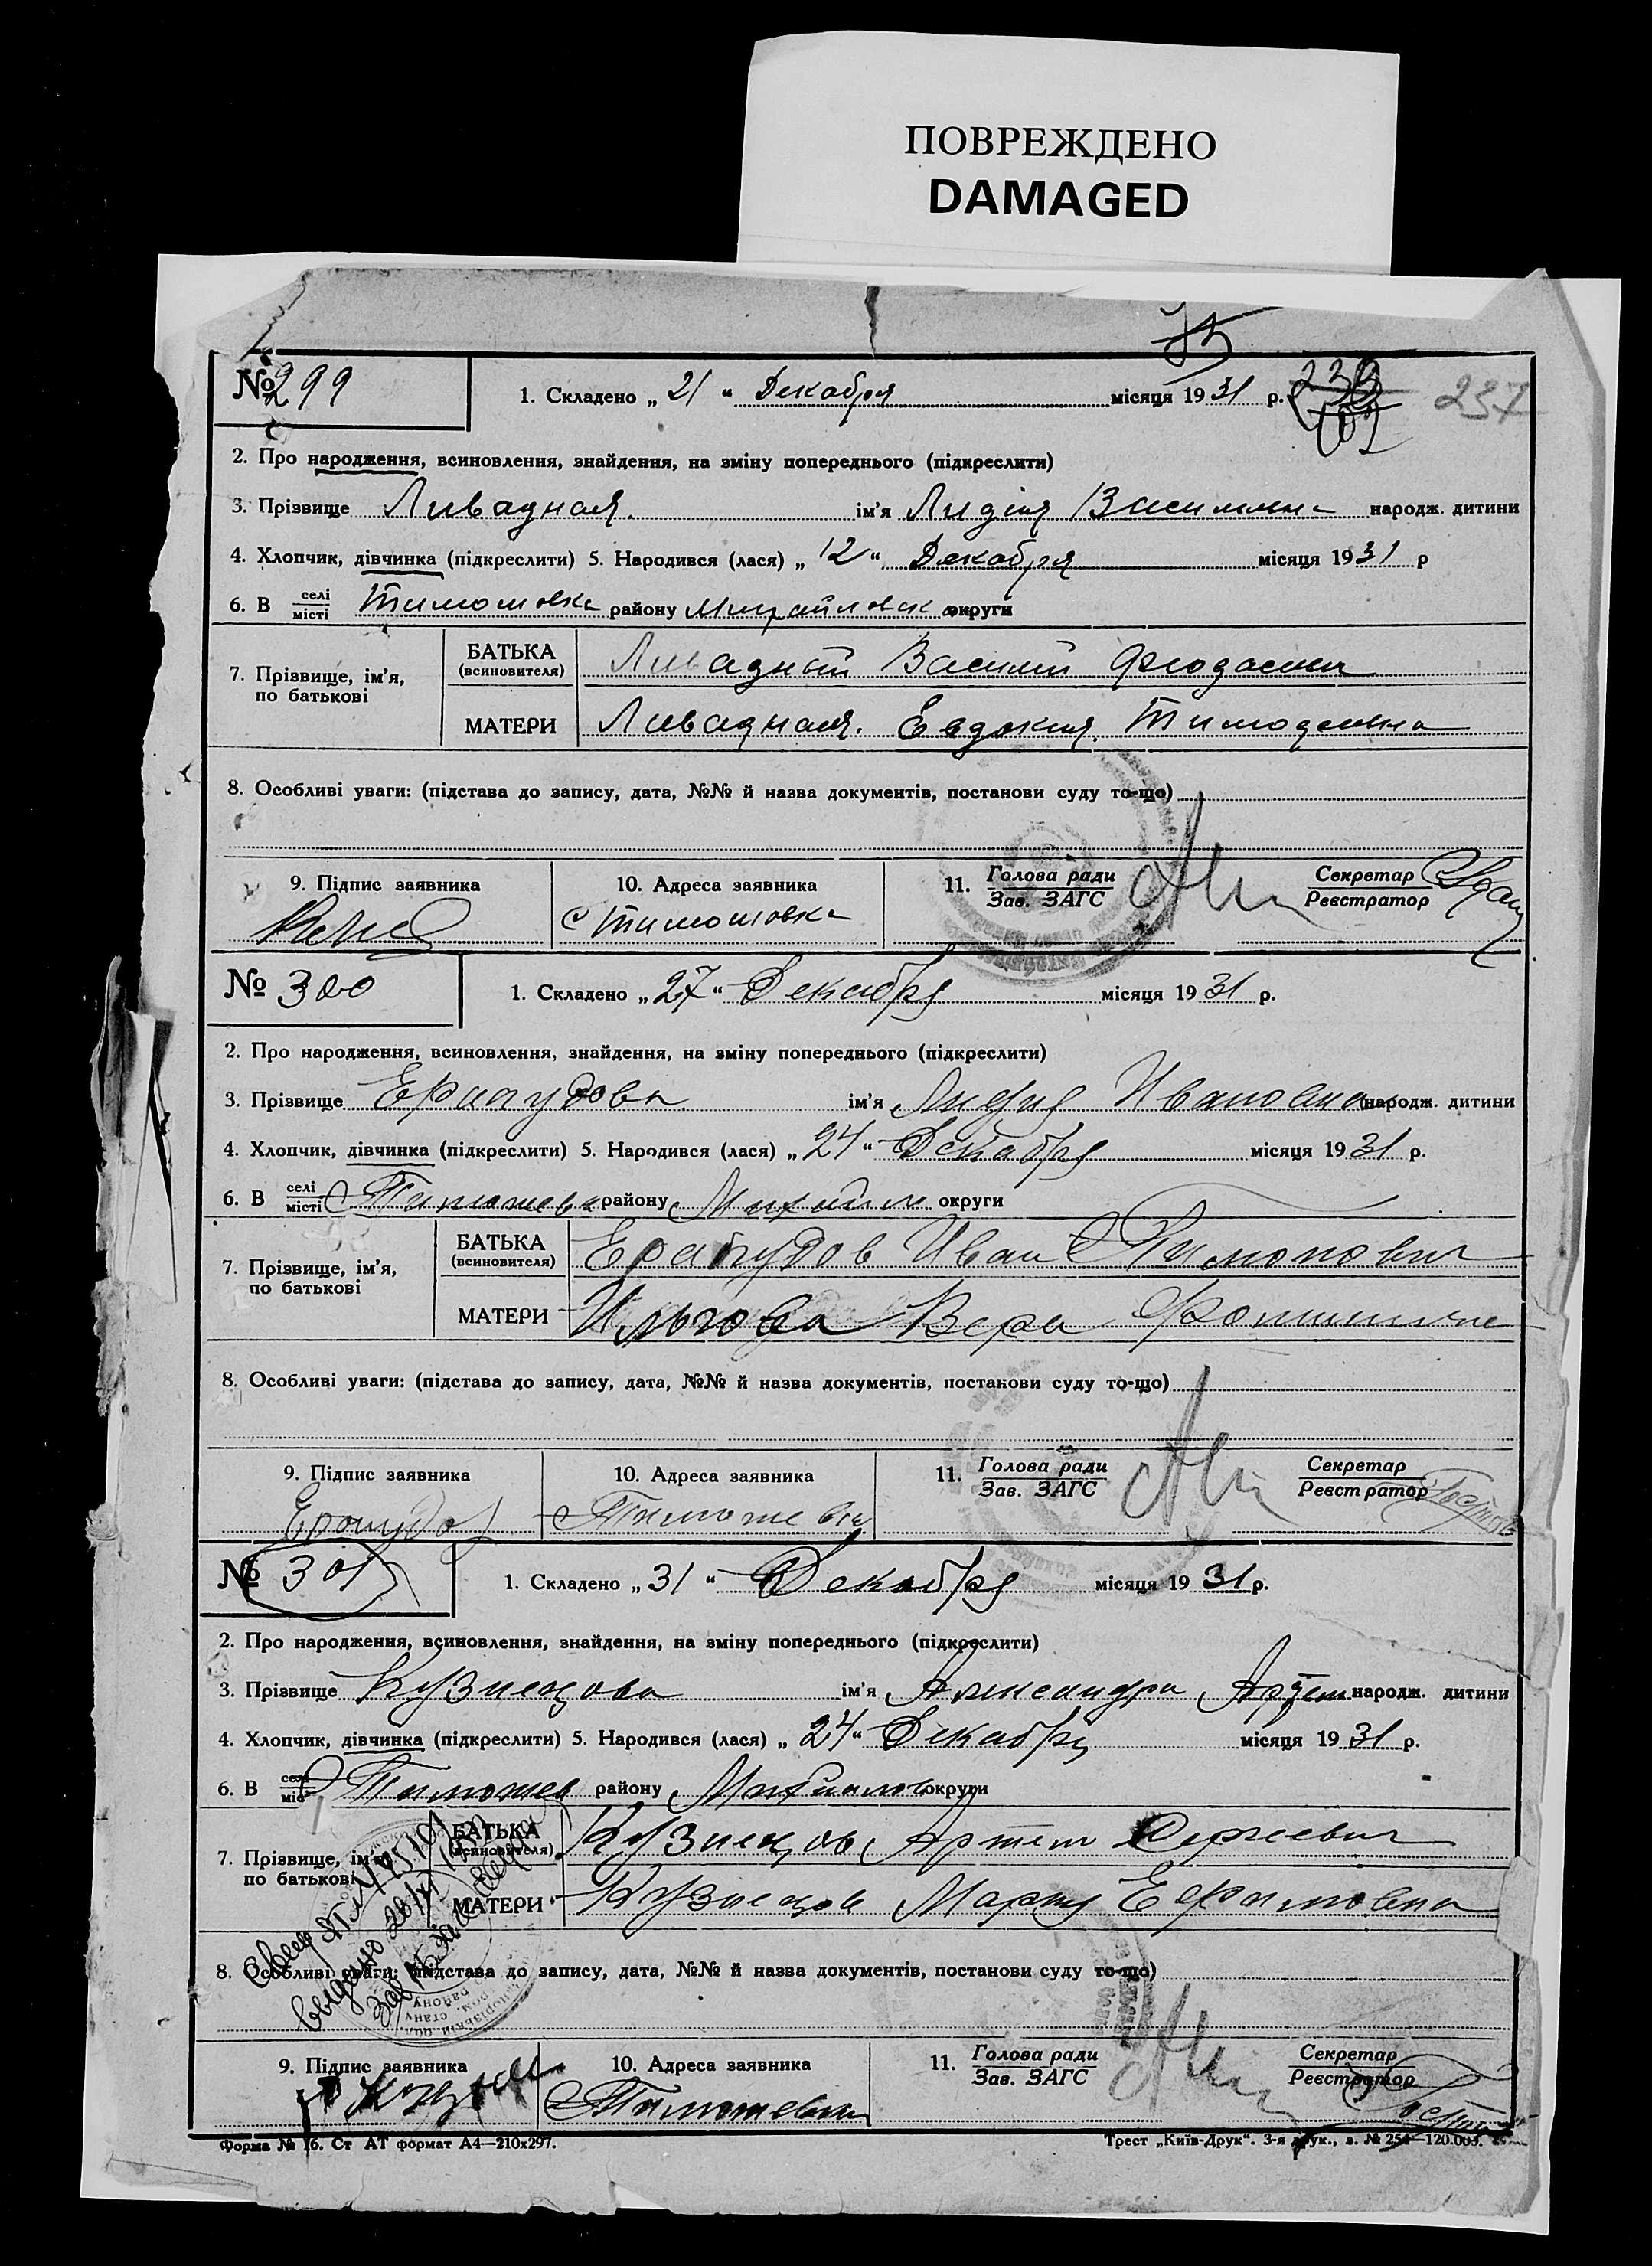 ПОВРЕЖДЕНО
DAMAGED
75
№ 299
1. Складено „ 21 “ Декабря місяця 19 31 р.
237
2. Про народження, всиновлення, знайдення, на зміну попереднього (підкреслити)
3. Прізвище Ливадная. ім'я Лидия народж. дитини
4. Хлопчик, дівчинка (підкреслити) 5. Народився (лася) „ 12 “ Декабря місяця 19 31 р
6. В селі/місті Тимошовка району Михайловск округи
7. Прізвище, ім'я, по батькові
БАТЬКА (всиновителя) Ливадный Василий
МАТЕРИ Ливадная. Евдокия
8. Особливі уваги: (підстава до запису, дата, №№ й назва документів, постанови суду то-що)
9. Підпис заявника
10. Адреса заявника
с Тимошовка
11. Голова ради / Зав. ЗАГС
Секретар / Реєстратор
№ 300
1. Складено „ 27 “ Декабря місяця 19 31 р.
2. Про народження, всиновлення, знайдення, на зміну попереднього (підкреслити)
3. Прізвище ім'я Лидия Ивановна народж. дитини
4. Хлопчик, дівчинка (підкреслити) 5. Народився (лася) „ 24 “ Декабря місяця 19 31 р.
6. В селі/місті С Тимошевк району Михайл округи
7. Прізвище, ім'я, по батькові
БАТЬКА (всиновителя) Иван
МАТЕРИ Вера
8. Особливі уваги: (підстава до запису, дата, №№ й назва документів, постанови суду то-що)
9. Підпис заявника
10. Адреса заявника
С Тимошевка
11. Голова ради / Зав. ЗАГС
Секретар / Реєстратор
№ 301
1. Складено „ 31 “ Декабря місяця 19 31 р.
2. Про народження, всиновлення, знайдення, на зміну попереднього (підкреслити)
3. Прізвище Кузнецова ім'я Александра Артем народж. дитини
4. Хлопчик, дівчинка (підкреслити) 5. Народився (лася) „ 24 “ Декабря місяця 19 31 р.
6. В селі/місті С Тимошев району Михайлов округи
7. Прізвище, ім'я, по батькові
БАТЬКА (всиновителя) Кузнецов Артем Сергеевич
МАТЕРИ Кузнецова Мария Ефимовна
8. Особливі уваги: (підстава до запису, дата, №№ й назва документів, постанови суду то-що)
9. Підпис заявника
10. Адреса заявника
С Тимошевка
11. Голова ради / Зав. ЗАГС
Секретар / Реєстратор
Форма № 16. Ст АТ формат А4—210х297.
Трест „Київ-Друк“. 3-я друк., з. № 254—120.003.